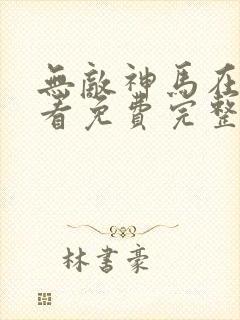 無敵神馬在
看免費完整
林書豪